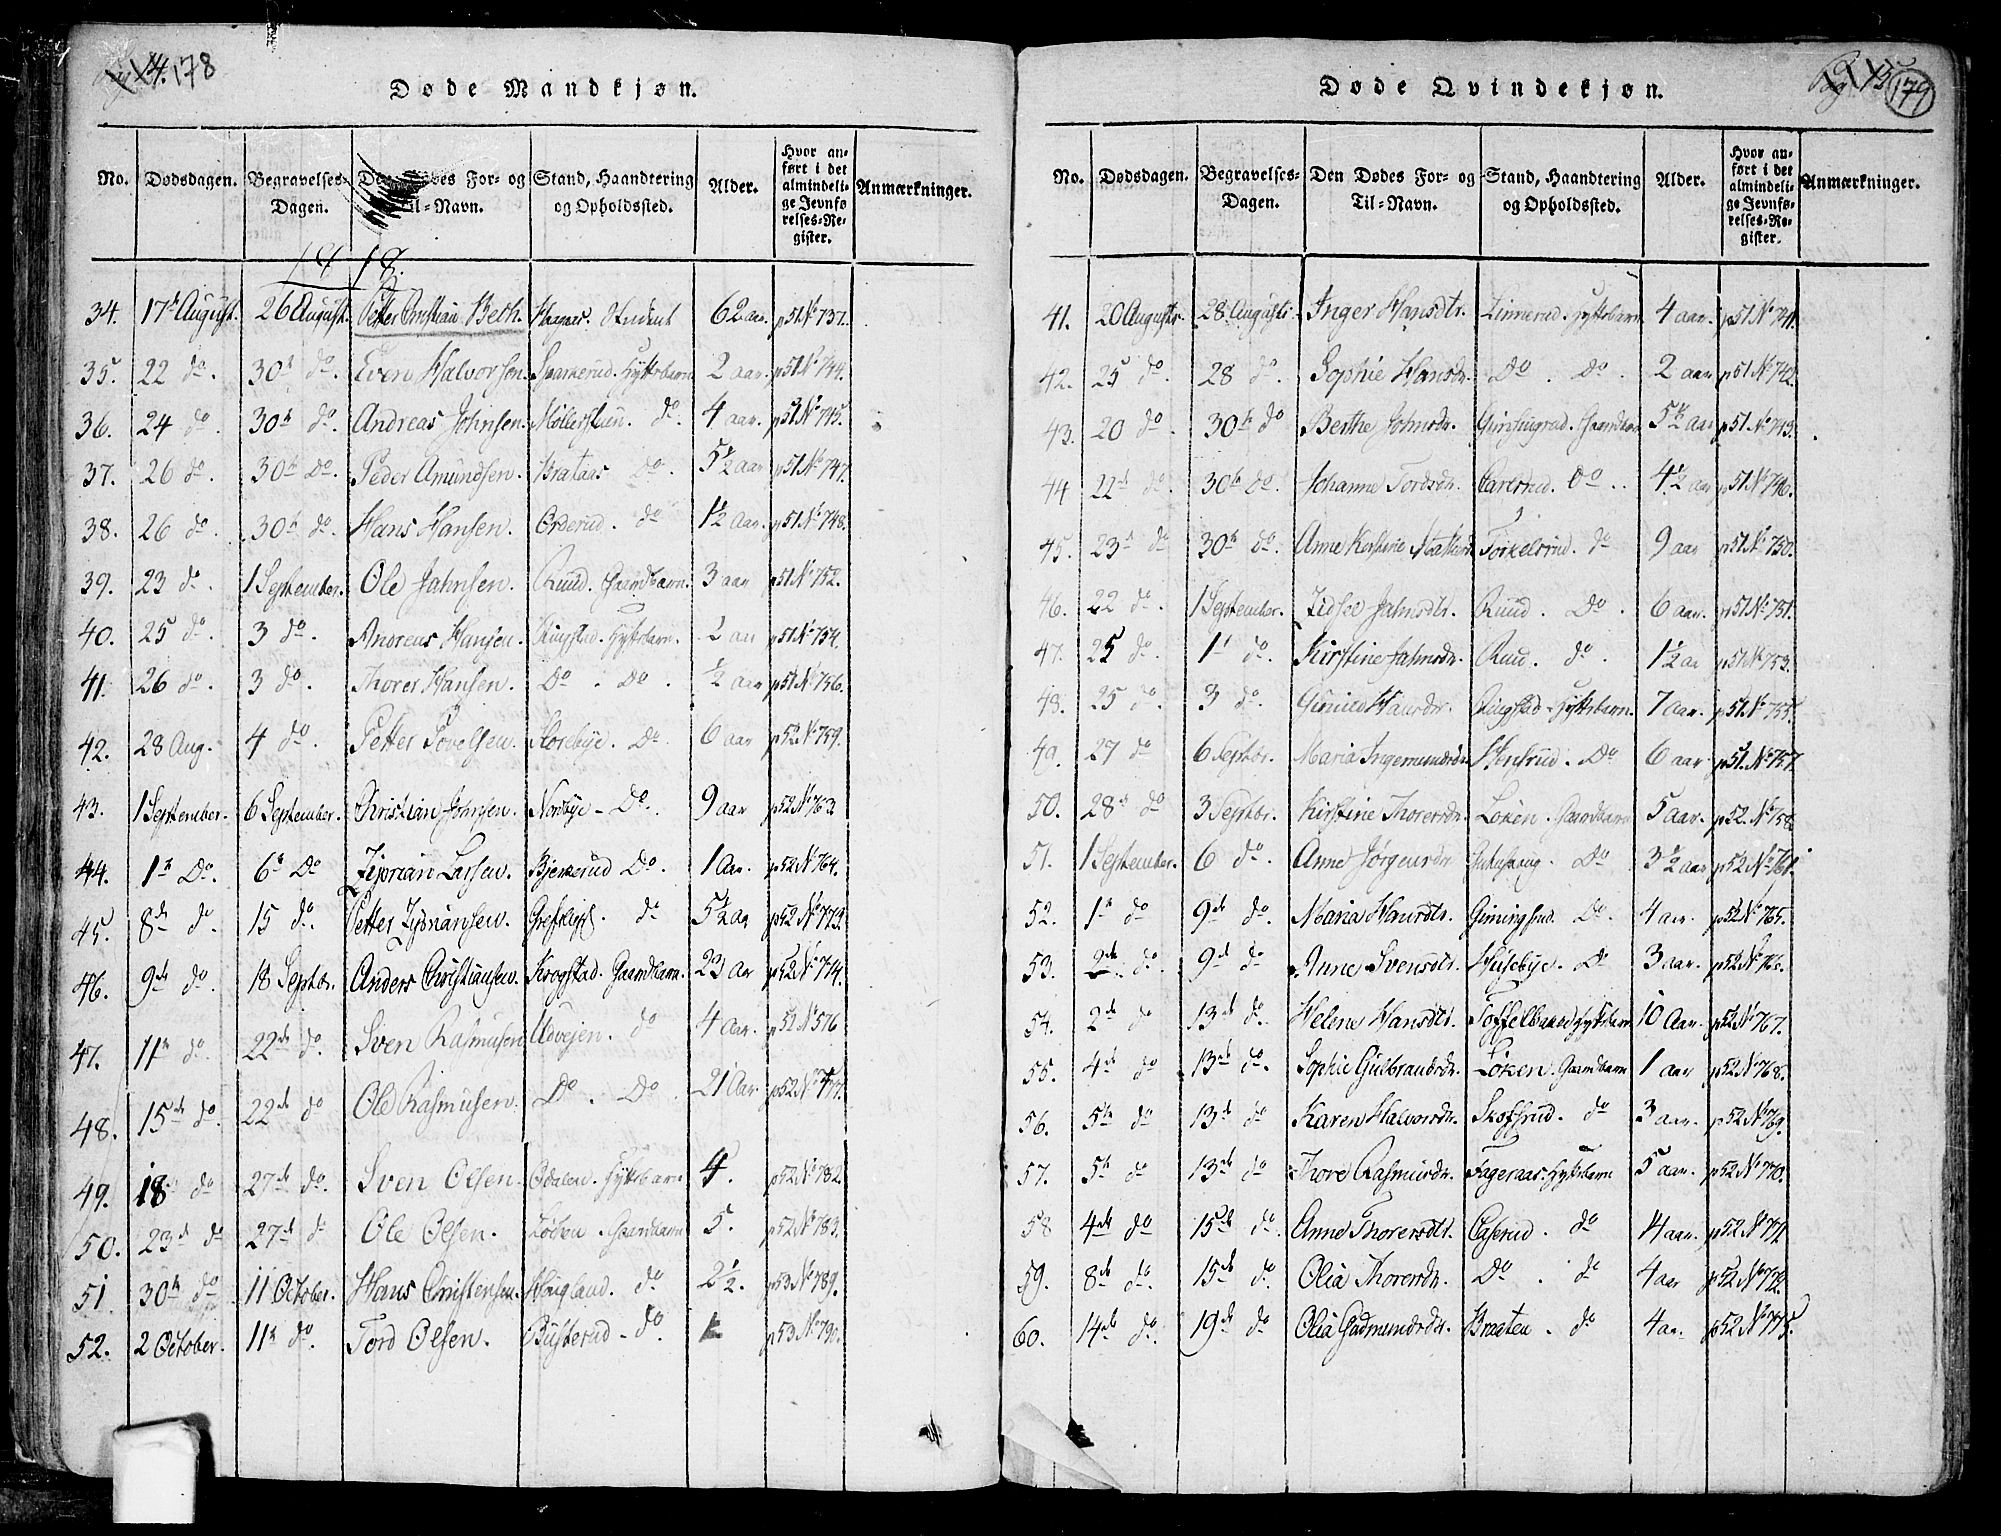 178
Døde Mandkjøn.
No. Dødsdagen. Begravelses-Dagen. Den Dødes For- og Til-Navn. Stand, Haandtering og Opholdssted. Alder. Hvor anført i det almindelige Jevnførelses-Register. Anmærkninger.
1818.
34. 17de August. 26 August. Petter Christian Beth. Student 62 aar. p51 No 737.
35. 22 do. 30te do. Even Halvorsen. Hyttebarn 2 aar. p51 No 744.
36. 24 do. 30te do. Andreas Johnsen. Møllerstuen. do. 4 aar. p51 No 745.
37. 26 do. 30te Do. Peder Amundsen. Brataas Do. 5½ aar p51 No 747.
38. 26 do. 30te do. Hans Hansen. Orderud. do 1½ aar. p51 No 748.
39. 23 do. 1 September. Ole Jahnsen. Ruud. Gaardbarn. 3 aar p51 No 752.
40. 25 do. 3 do. Andreas Hansen. Ringstad. Hyttebarn. ½ aar p51 No 754.
41. 26 do. 3 do. Thorer Hansen. Do. Do. ½ aar p51 No 756.
42. 28 Aug. 4 do. Petter Povelsen. Storebye. Do 6 aar p52 No 759.
43. 1 September. 6 September. Christian Johnsen. Nordbye - Do. 9 aar p52 No 763.
44. 1te Do. 6te Do Ziprian Larsen. Bjerkerud Do. 1 Aar. p52 No 764.
45. 8de do. 15 do. Petter do 5½ aar p52 No 773.
46. 9de do. 18 Septbr. Anders Christiansen. Krogstad. Gaardbarn. 23 Aar p52 No 774.
47. 11te do. 22de do. Sven Rasmusen Udvejen. do 4 Aar. p52 No 576
48. 15de do. 22de do Ole Rasmusen. Do. Do 21 Aar. p52 No 777.
49. 18 do 27de do. Sven Olsen. Odalen. Hyttebarn 4. p52 No 782.
50. 23de do 27de do Ole Olsen. Gaardbarn 5. p52 No 783.
51 30te do 11 October. Hans Christensen. Haugland. do 2½. p53 No 789.
52. 2 October. 11te do. Tord Olsen. Busterud - do. p53 No 790.
179
Døde Qvindekjøn.
No. Dødsdagen. Begravelses-Dagen. Den Dødes For- og Til-Navn. Stand, Haandtering og Opholdssted. Alder. Hvor anført i det almindelige Jevnførelses-Register. Anmærkninger.
41. 20 Augustr. 28 Augustr. Inger Hansdtr. Linnerud. Hyttebarn 4 aar. p51 No 741.
42. 25 do. 28 do. Sophie Hansdr. Do. Do. 2 aar p51 No 742.
43. 20 do. 30te do Berthe Johnsdr. Gaardbarn 5½ aar p51 No 743.
44 22de do. 30te do. Johanne Tordsdr. Do. 4½ aar p51 No 746.
45. 23de do 30te do. Anne Kirstine Torkelsrud. do 9 aar p51 No 750.
46. 22 do. 1 September. Zidsee Jahnsdtr. Ruud. Do. 6 aar. p51 No 751.
47. 25 do. 1te do. Kirstine Jahnsdr. Ruud. do. 1½ aar p51 No 753.
48. 25 do. 3 do. Gunild Hansdr. Ringstad - Hyttebarn. 7 aar. p51 No 755.
49. 27 do 6 Septbr. Maria Ingemundsdr. Do 6 aar p51. No 757.
50. 28de do 3 Septbr. Kirstine Thorersdr. Løken. Gaardbarn 5 aar. p52. No 758.
51. 1 September. 6 do. Anne Jørgensdr Do 3½ aar p52 No 761.
52. 1te do 9de do. Maria Hansdtr. Gimingsrud. Do. 4 aar. p52 No 765.
53. 2de do. 9de do Anne Svensdtr. Husebye. Do 3 aar. p52 No 766.
54. 2de do 13de do. Helene Hansdtr. Toffelbakke Hyttebarn 10 Aar. p52 No 767.
55. 4de do 13de do. Sophie Gulbransdr. Løken. Gaardbarn 1 aar p52 No 768.
56. 5te do 13de do Karen Halvorsdr. Skofsrud. do 3 aar. p52 No 769.
57. 5te do 13de do Thore Rasmusdr. Fageraas. Hyttebarn 5 aar. p52 No 770.
58 4de do 15de do. Anne Thorersdtr. Caserud. do 4 aar. p52 No 771
59. 8de do. 15de do. Olia Thorersdr. Do. do 4 aar p52 No 772.
60. 14de do. 19de do Olia Gudmundsdr. Braaten. do 4 aar. p52 No 775.